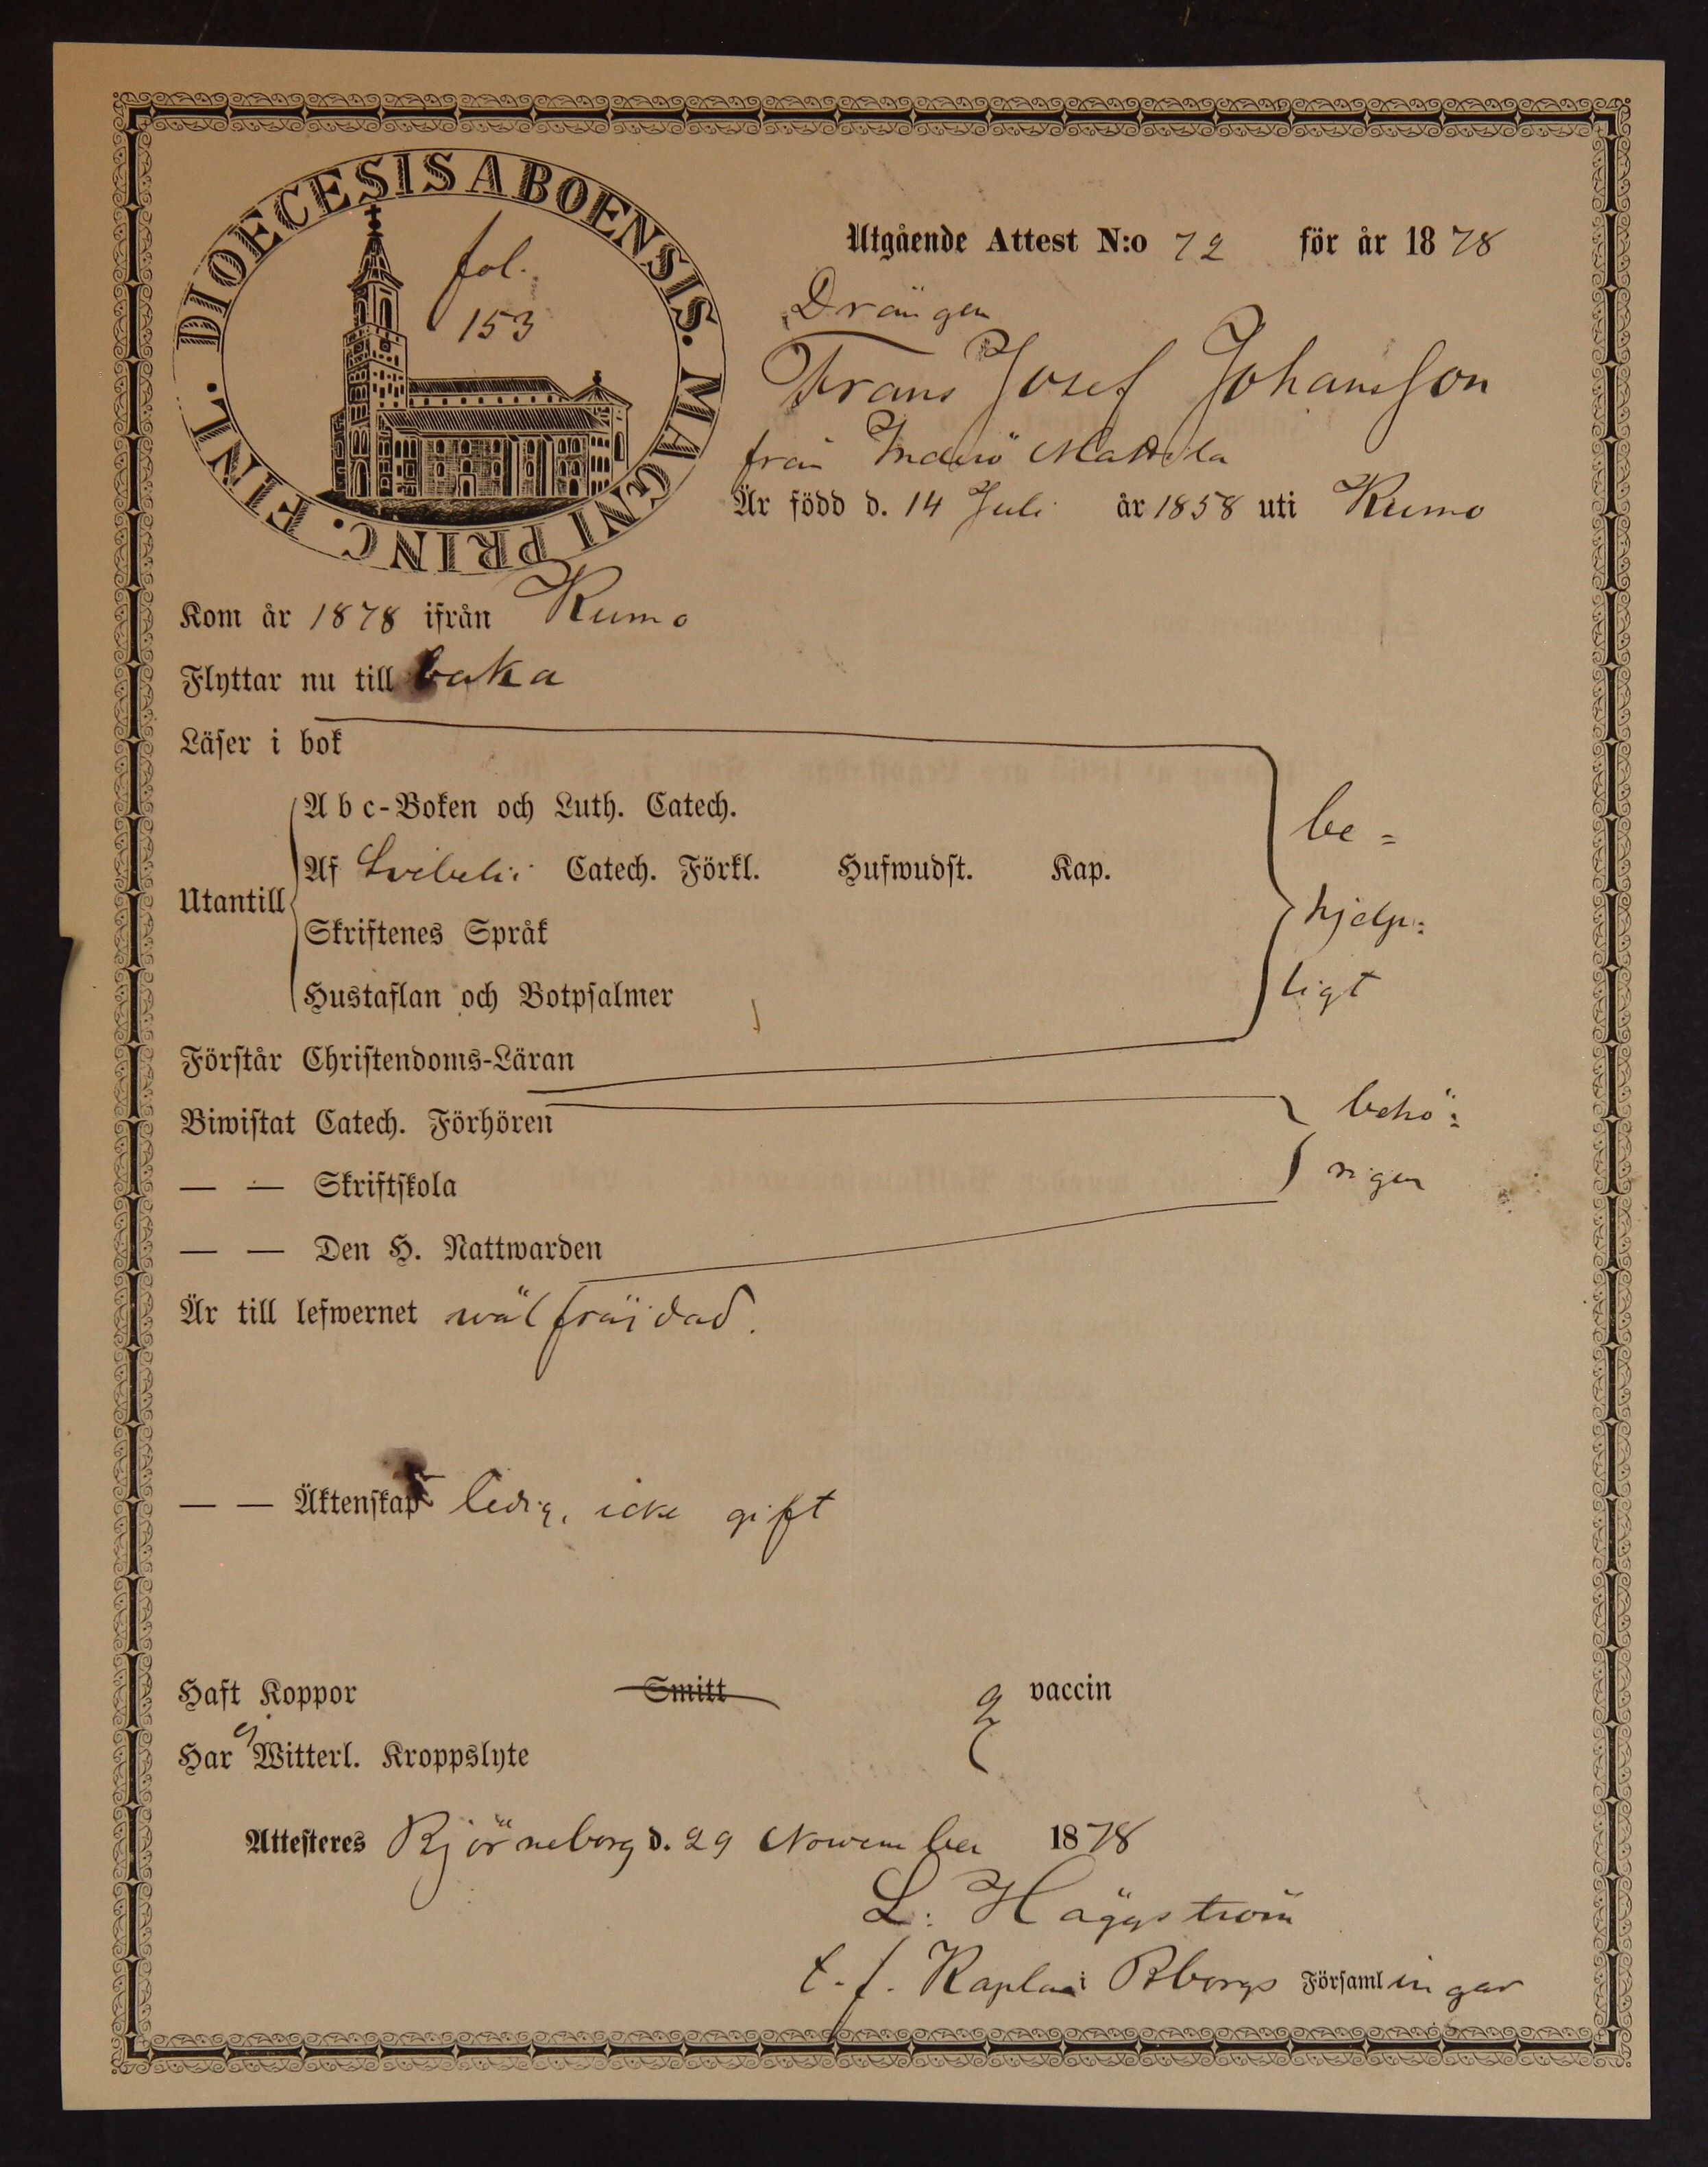 DIOECESIS ABOENSIS. MAGNI PRINC. FINL.
fol.
153
Utgående Attest N:o 72 för år 1878
Drängen
Frans Josef Johansson
från Inderö Mattila
Är född d. 14 Juli år 1858 uti Kumo
Kom år 1878 ifrån Kumo
Flyttar nu till baka
Läser i bok
A b c-Boken och Luth. Catech.
be=
Utantill
Af Svebelii Catech. Förkl. Hufwudst. Kap.
hjelp=
Skriftenes Språk
Hustaflan och Botpsalmer
ligt
Förstår Christendoms-Läran
Biwistat Catech. Förhören
behö=
— — Skriftskola
rigen
— — Den H. Nattwarden
Är till lefwernet wälfräjdad.
— — Äktenskap ledig, icke gift
Haft Koppor Smitt vaccin
Har ej Witterl. Kroppslyte
Attesteres Björneborg d. 29 November 1878
L. Häggström
t. f. Kaplan i Bborgs Församlingar